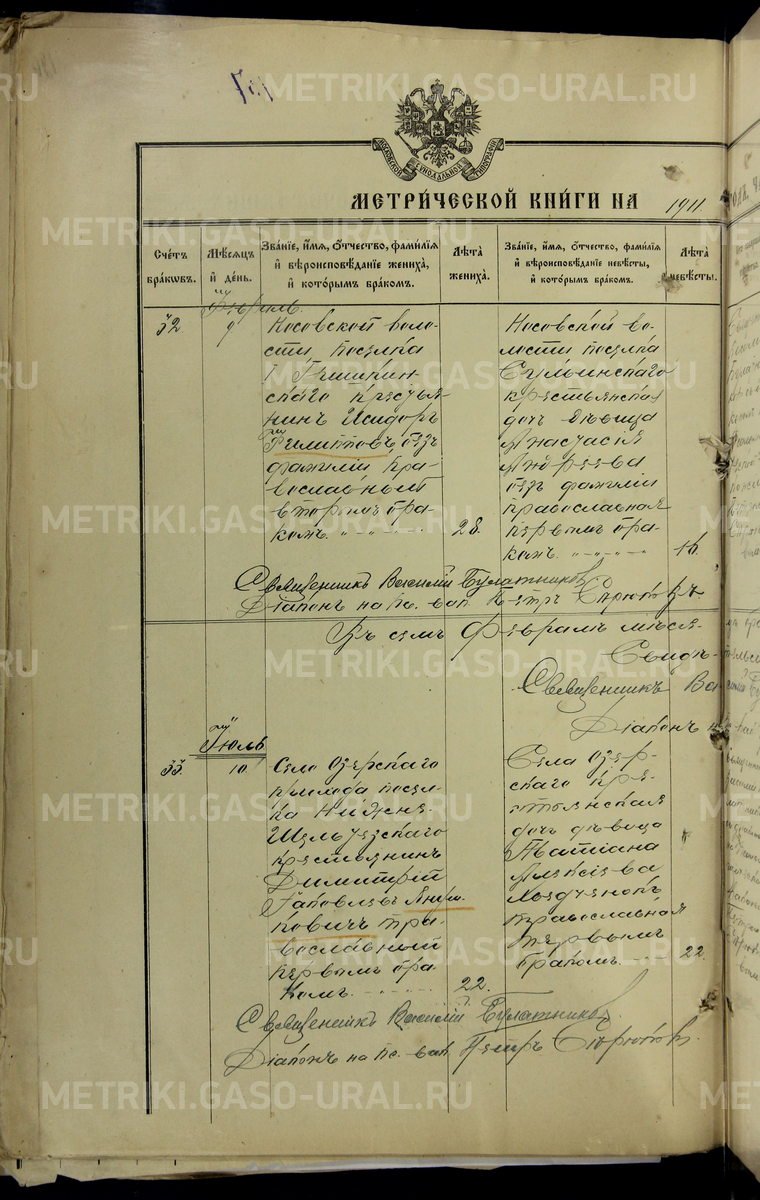 METRIKI.GASO-URAL.RU
МОСКОВСКОЙ СѴНОДАЛЬНОЙ ТИПОГРАФІИ
МЕТРИЧЕСКОЙ КНИГИ НА 1911.
Счетъ браковъ.
Мѣсяцъ и день.
Званіе, имя, отчество, фамилія и вѣроисповѣданіе жениха, и которымъ бракомъ.
Лѣта жениха.
Званіе, имя, отчество, фамилія и вѣроисповѣданіе невѣсты, и которымъ бракомъ.
Лѣта невѣсты.
Февраль.
32.
9
Носовской воло-
сти поселка
Гришкин-
скаго кресть-
нинъ Исидоръ
Филипповъ безъ
фамиліи пра-
вославный
вторымъ бра-
комъ.
28.
Носовской во-
лости поселка
крестьянская
дочь дѣвица
Анастасія
Андреева
безъ фамиліи
православная
первымъ бра-
комъ.
16.
Священникъ Василій Булатниковъ
Діаконъ на пс. вак. Петръ
Въ семъ Февралѣ мѣся-
Свидѣ-
Священникъ Ва
Діаконъ н
Іюль
33.
10.
Села Озерскаго
прихода посел-
ка Нижне-
крестьянинъ
Димитрій
Іаковлевъ Янко-
вичъ пра-
вославный
первымъ бра-
комъ.
22.
Села Озер-
скаго кре-
стьянская
дочь дѣвица
Татіана
Алексіева
православная
первымъ
бракомъ.
22.
Священникъ Василій Булатниковъ.
Діаконъ на пс. вак. Петръ